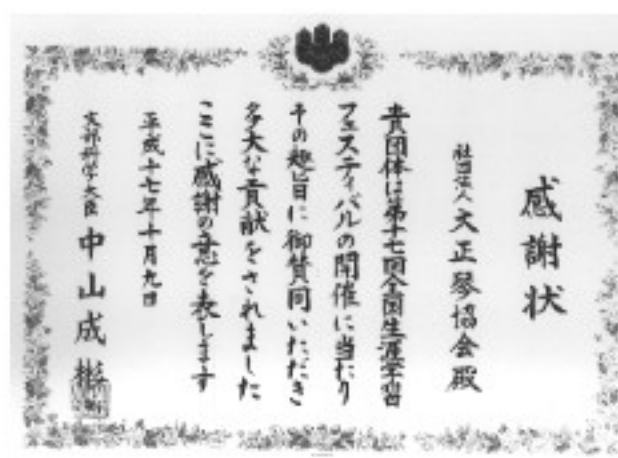 感謝状
社団法人 大正琴協会殿
貴団体は第十七回全国生涯学習
フェスティバルの開催に当たり
その趣旨に御賛同いただき
多大な貢献をされました
ここに感謝の意を表します
平成十七年十月九日
文部科学大臣 中山成彬